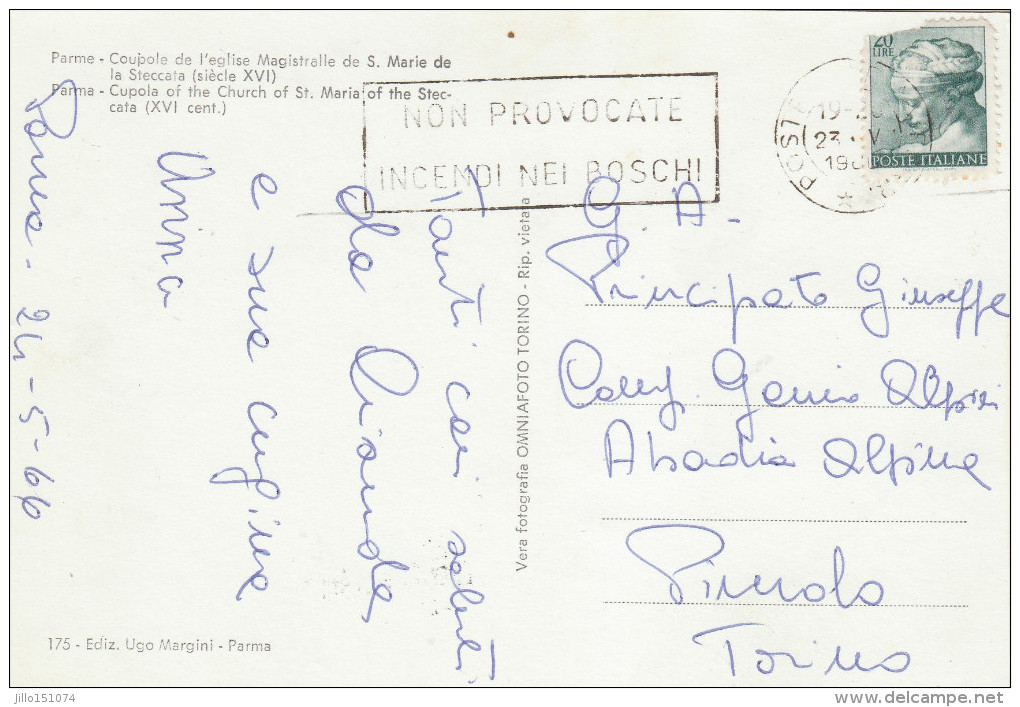 Parme - Coupole de l'eglise Magistralle de S. Marie de
la Steccata (siècle XVI)
Parma - Cupola of the Church of St. Maria of the Stec-
cata (XVI cent.)
NON PROVOCATE
INCENDI NEI BOSCHI
POSTE
19-
23
196
20
LIRE
POSTE ITALIANE
Parma - 24-5-66
Tanti cari saluti
da Cianda,
e sua cugina
Unina
Vera fotografia OMNIAFOTO TORINO - Rip. vietata
G. A.
Principato Giuseppe
Genio Alpini
Abadia Alpina
Pinerolo
Torino
175 - Ediz. Ugo Margini - Parma
jillo151074
delcampe.net